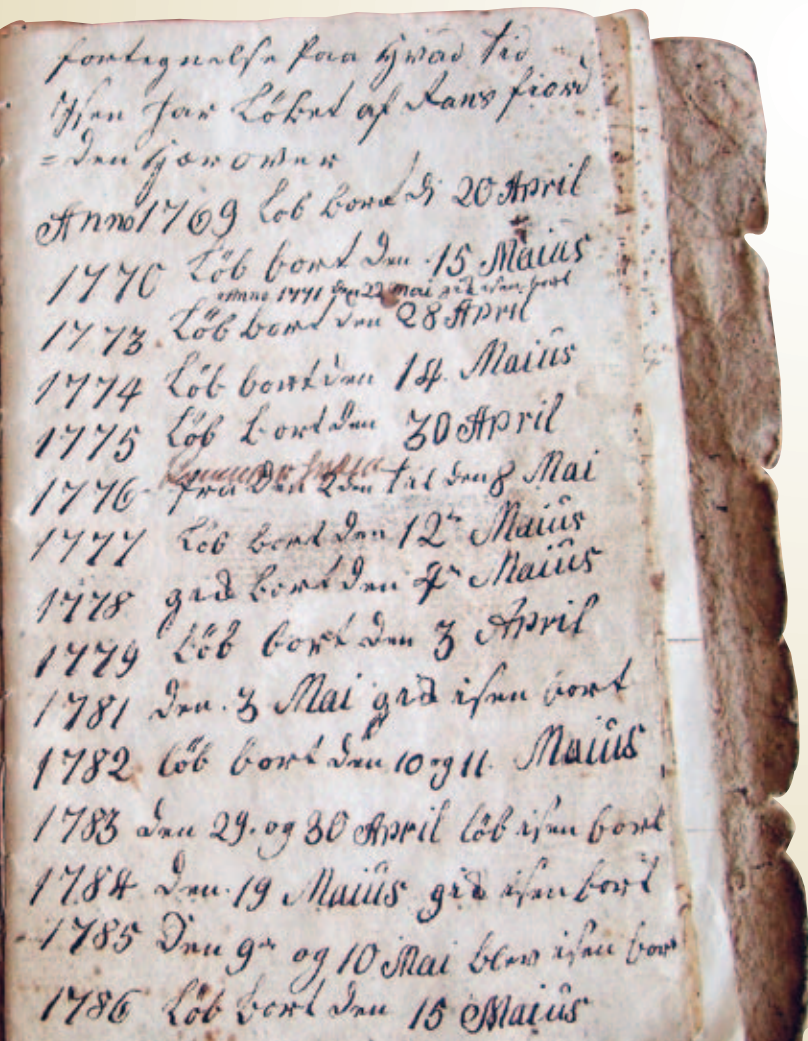 fortegnelse paa hvad tid
Isen har Løbet af Rans fiord
=den hær over
Anno 1769 Løb bort di 20 April
1770 Løb bort den 15 Maiüs
anno 1771 den 22 mai gik isen bort
1773 Løb bort den 28 April
1774 Løb bort den 14 Maiüs
1775 Løb bort den 30 April
1776 fra den 2den til den 8 Mai
1777 Løb bort den 12te Maiüs
1778 gik bort den 4de Maiüs
1779 Løb bort den 3 April
1781 den 3 Mai gik isen bort
1782 løb bort den 10 og 11 Maiüs
1783 den 29. og 30 April løb isen bort
1784 den 19 Maiüs gik isen bort
1785 den 9de og 10 Mai blev isen bor
1786 Løb bort den 15 Maiüs